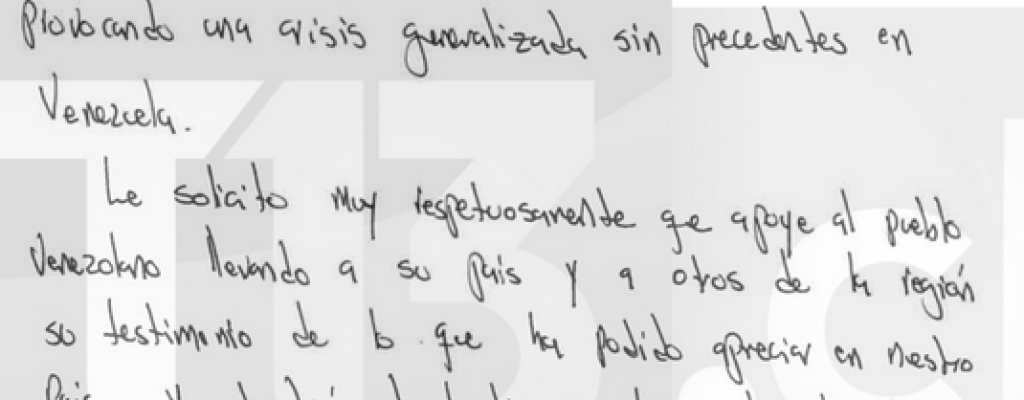 Provocando una crisis generalizada sin precedentes en
Venezuela.
Le solicito muy respetuosamente que apoye al pueblo
Venezolano llevando a su país y a otros de la región
su testimonio de lo que ha podido apreciar en nuestro
País
T13.cl